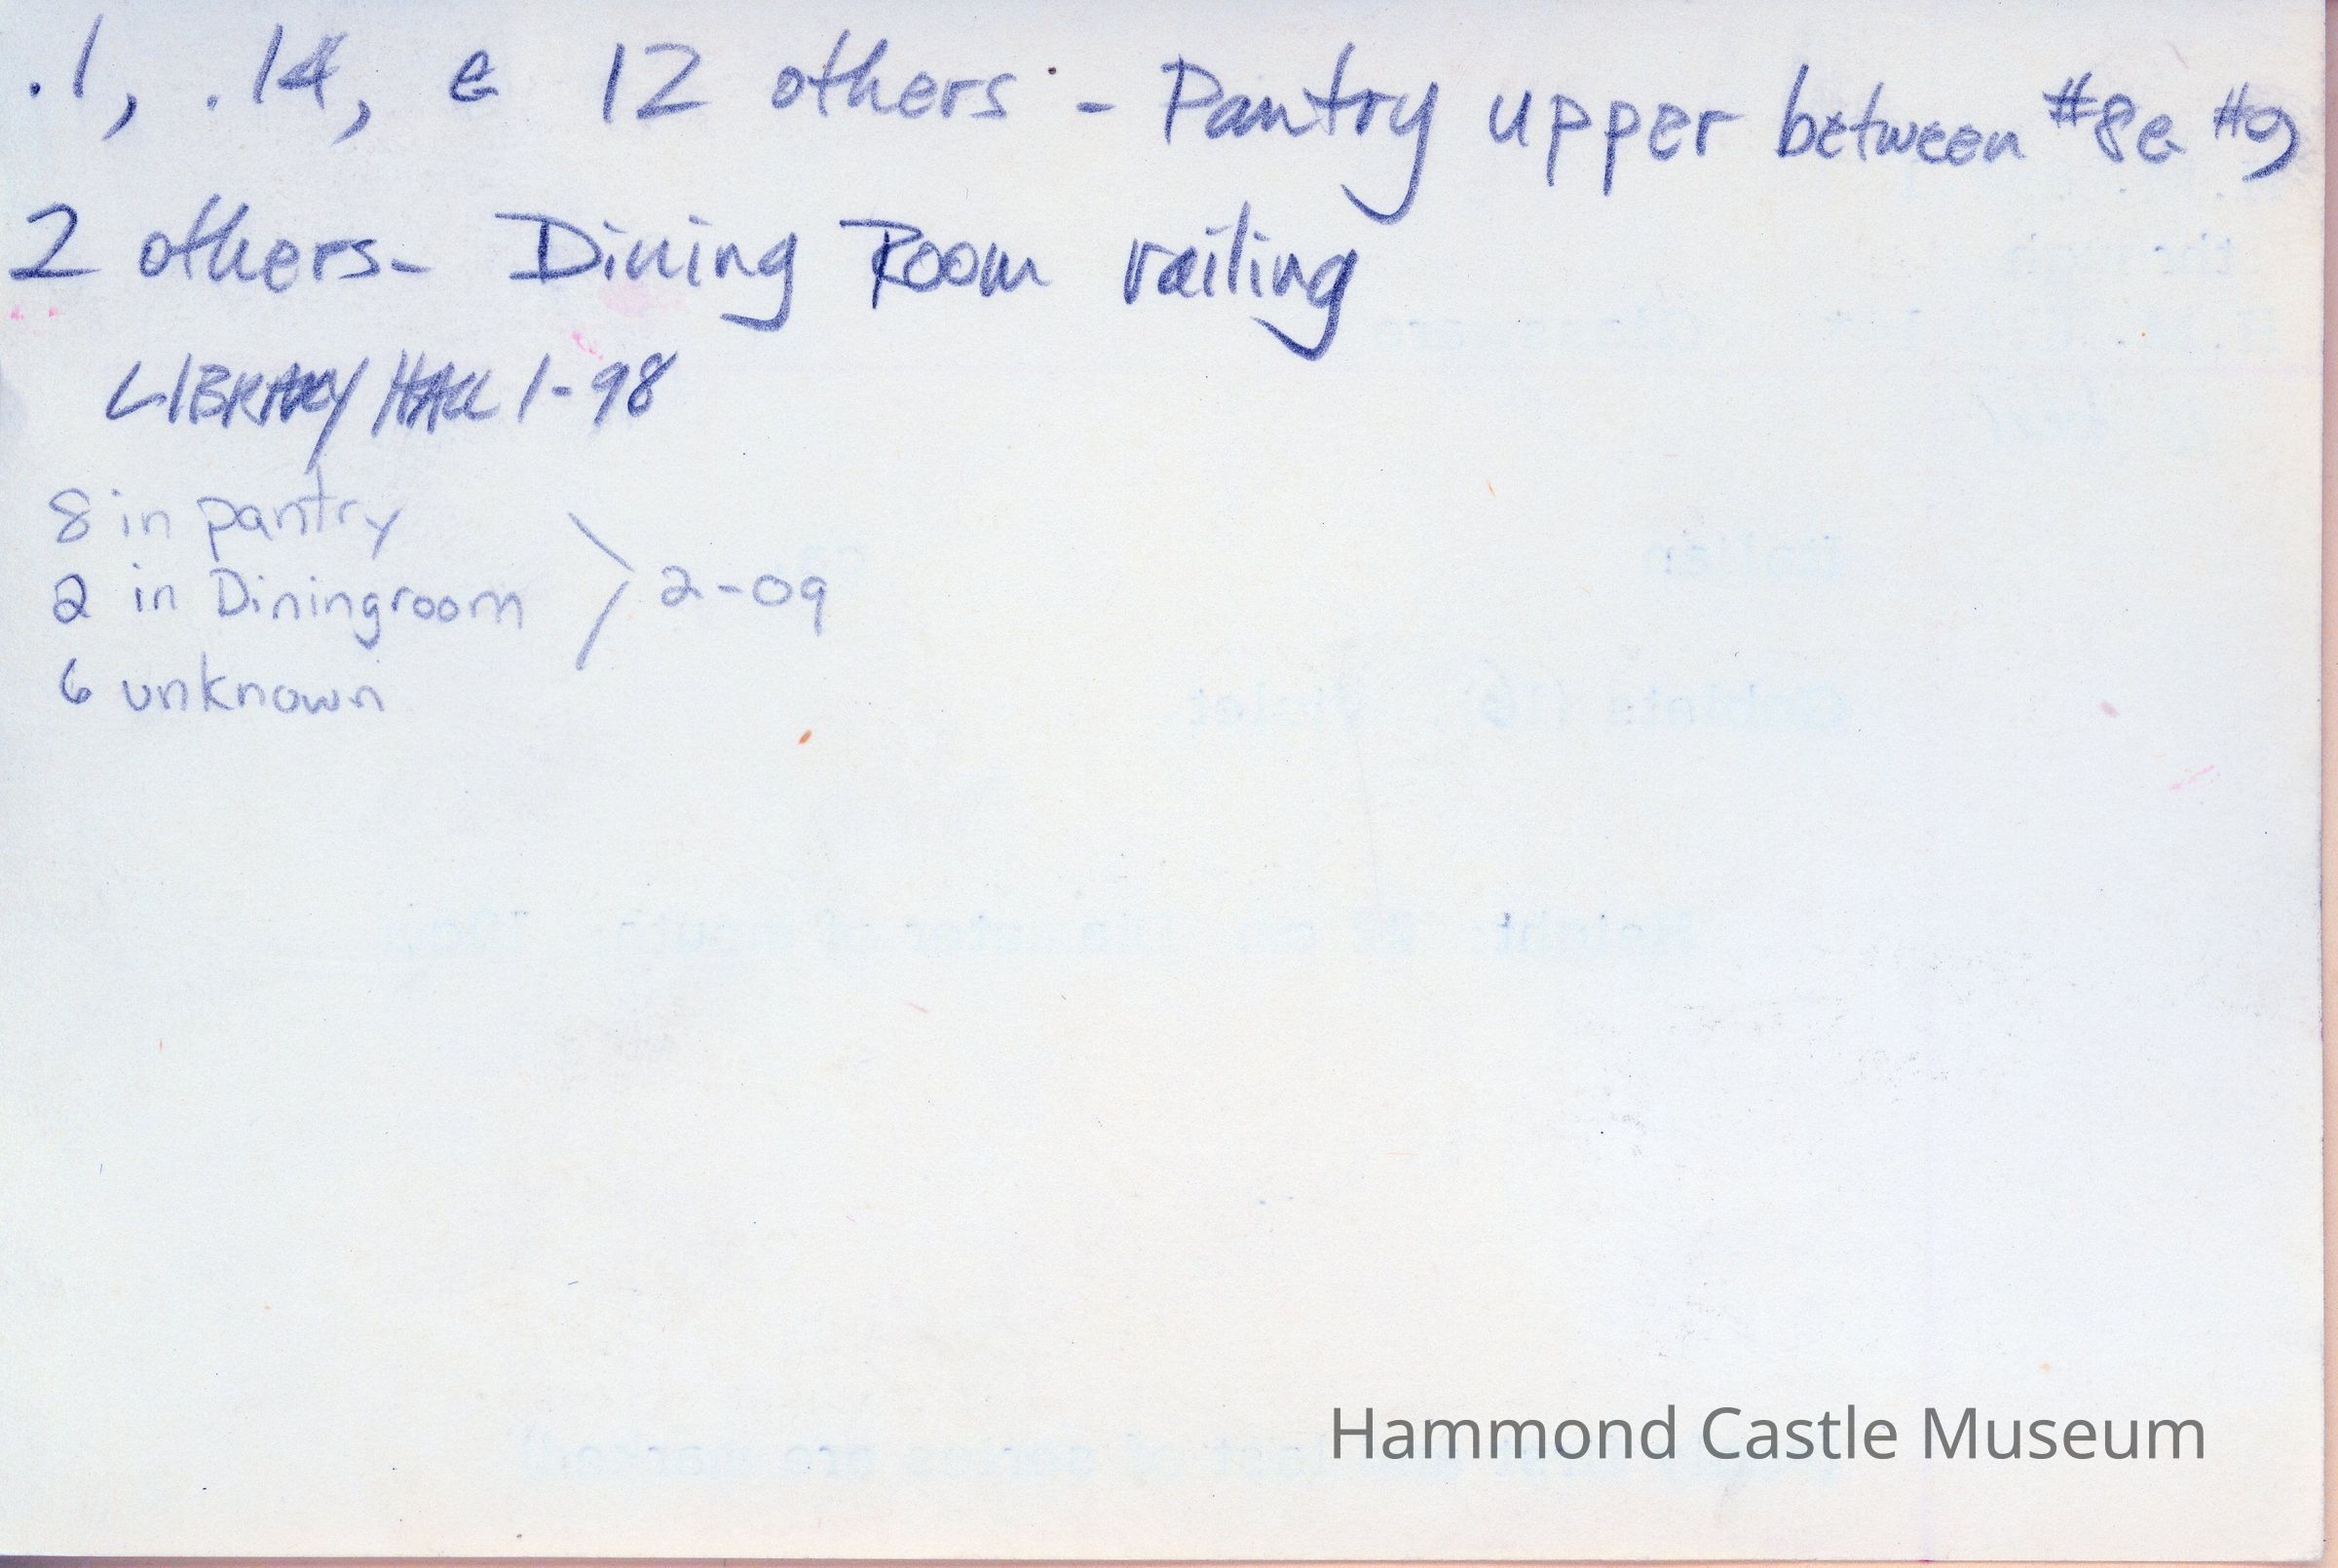 .1, .14, & 12 others - Pantry upper between #8 & #9
2 others - Dining Room railing
LIBRARY HALL 1-98
8 in pantry
2 in Diningroom > 2-09
6 unknown
Hammond Castle Museum